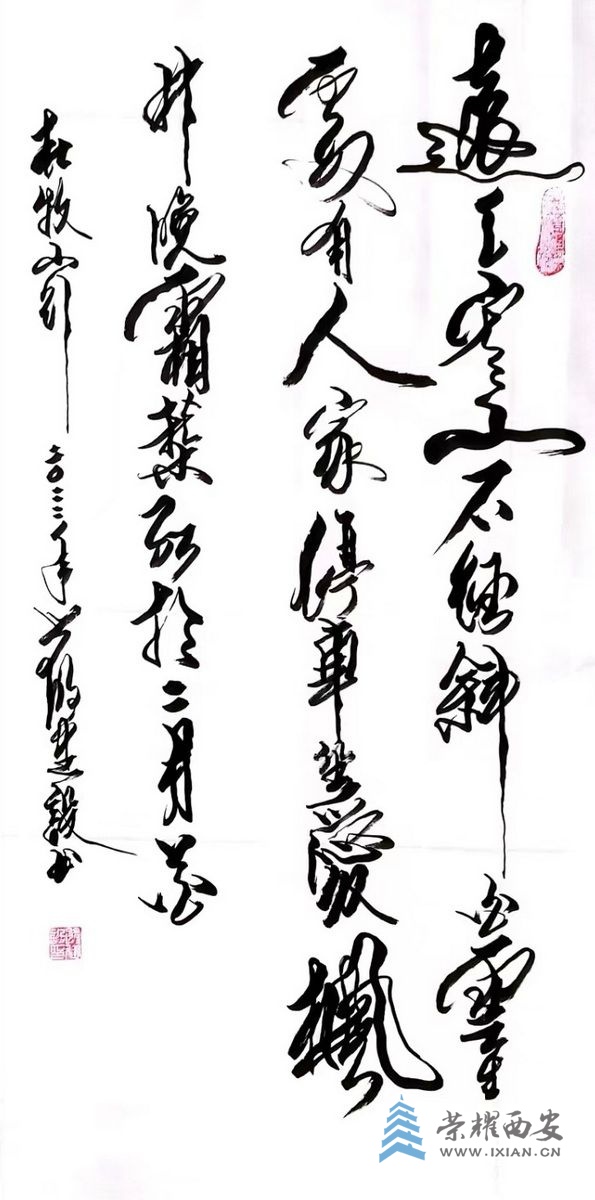 遠上寒山石徑斜白雲生
處有人家停車坐愛楓
林晚霜葉紅於二月花
杜牧山行 二〇二二年
荣耀西安
WWW.IXIAN.CN